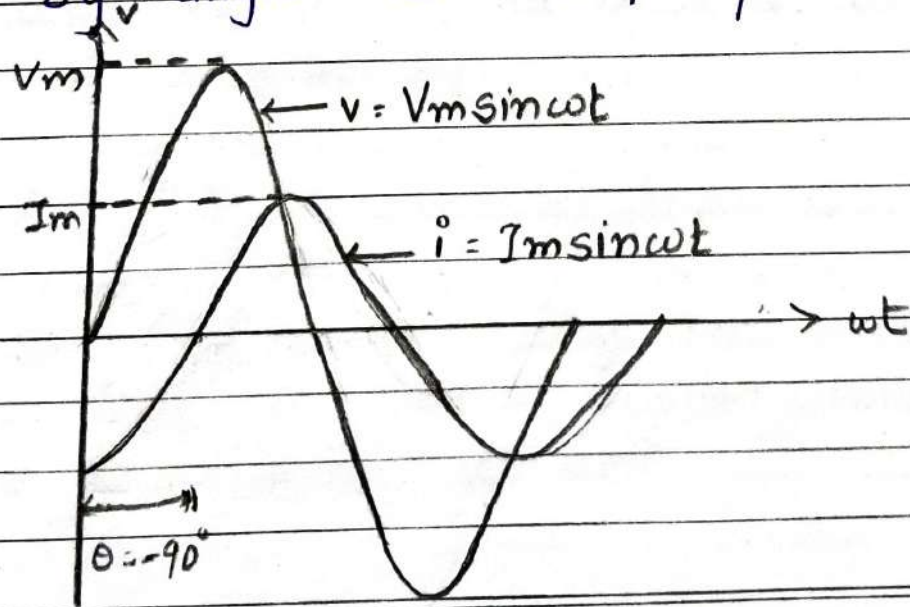 v
Vm
v = Vm sinωt
Im
i = Im sinωt
ωt
θ = -90°